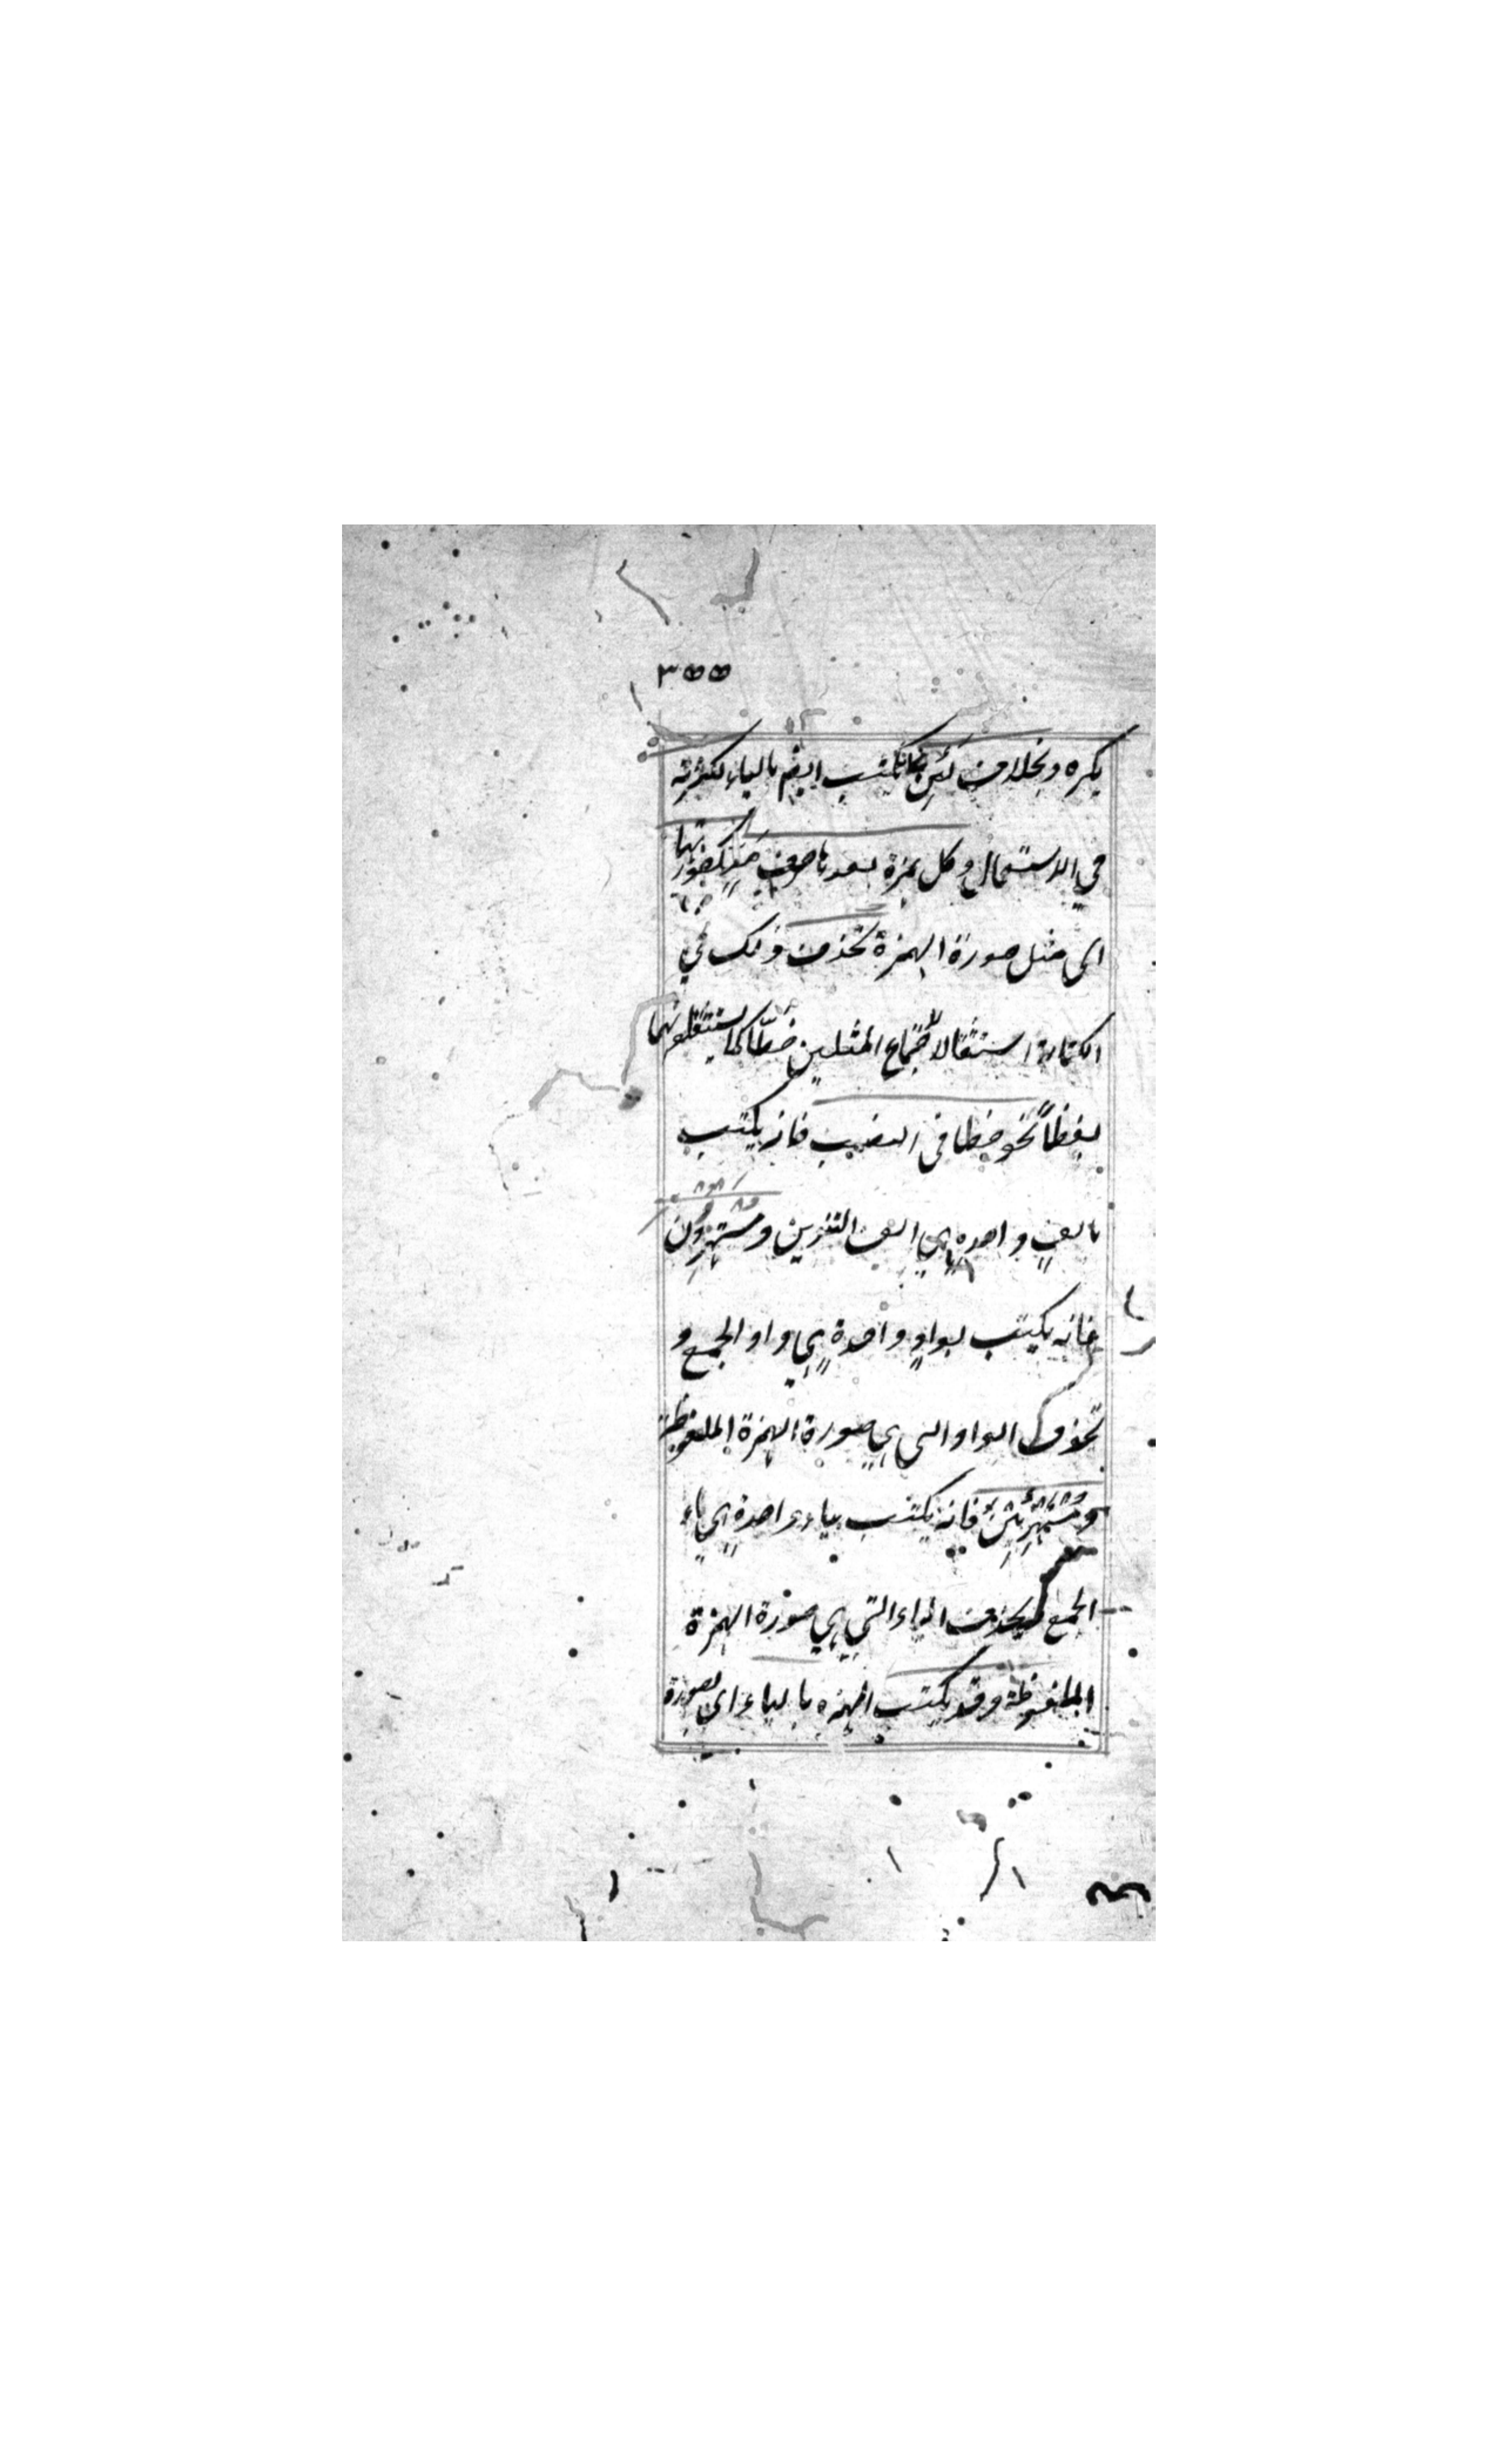 ٣٥٥
يكره وبخلاف لئن فانها تكتب ايضم بالياء لكثرته
في الاستعمال وكل همزة بعدها حرف مد كصورتها
اى مثل صورة الهمزة تحذف وذلك في
الكتابة استثقالا لاجتماع المثلين خطّا كما يستثقلونهما
لفظاً نحو خطا في النصب فانه يكتب
بالف واحده هي الف التنوين ومستهزؤن
فانه يكتب بواو واحدة هي واو الجمع و
تحذف الواو التى هي صورة الهمزة الملفوظة
ومستهزئين فانه يكتب بياء واحدة هي ياء
الجمع ويحذف الياء التي هي صورة الهمزة
الملفوظة وقد يكتب الهمزه بالياء اى بصورة